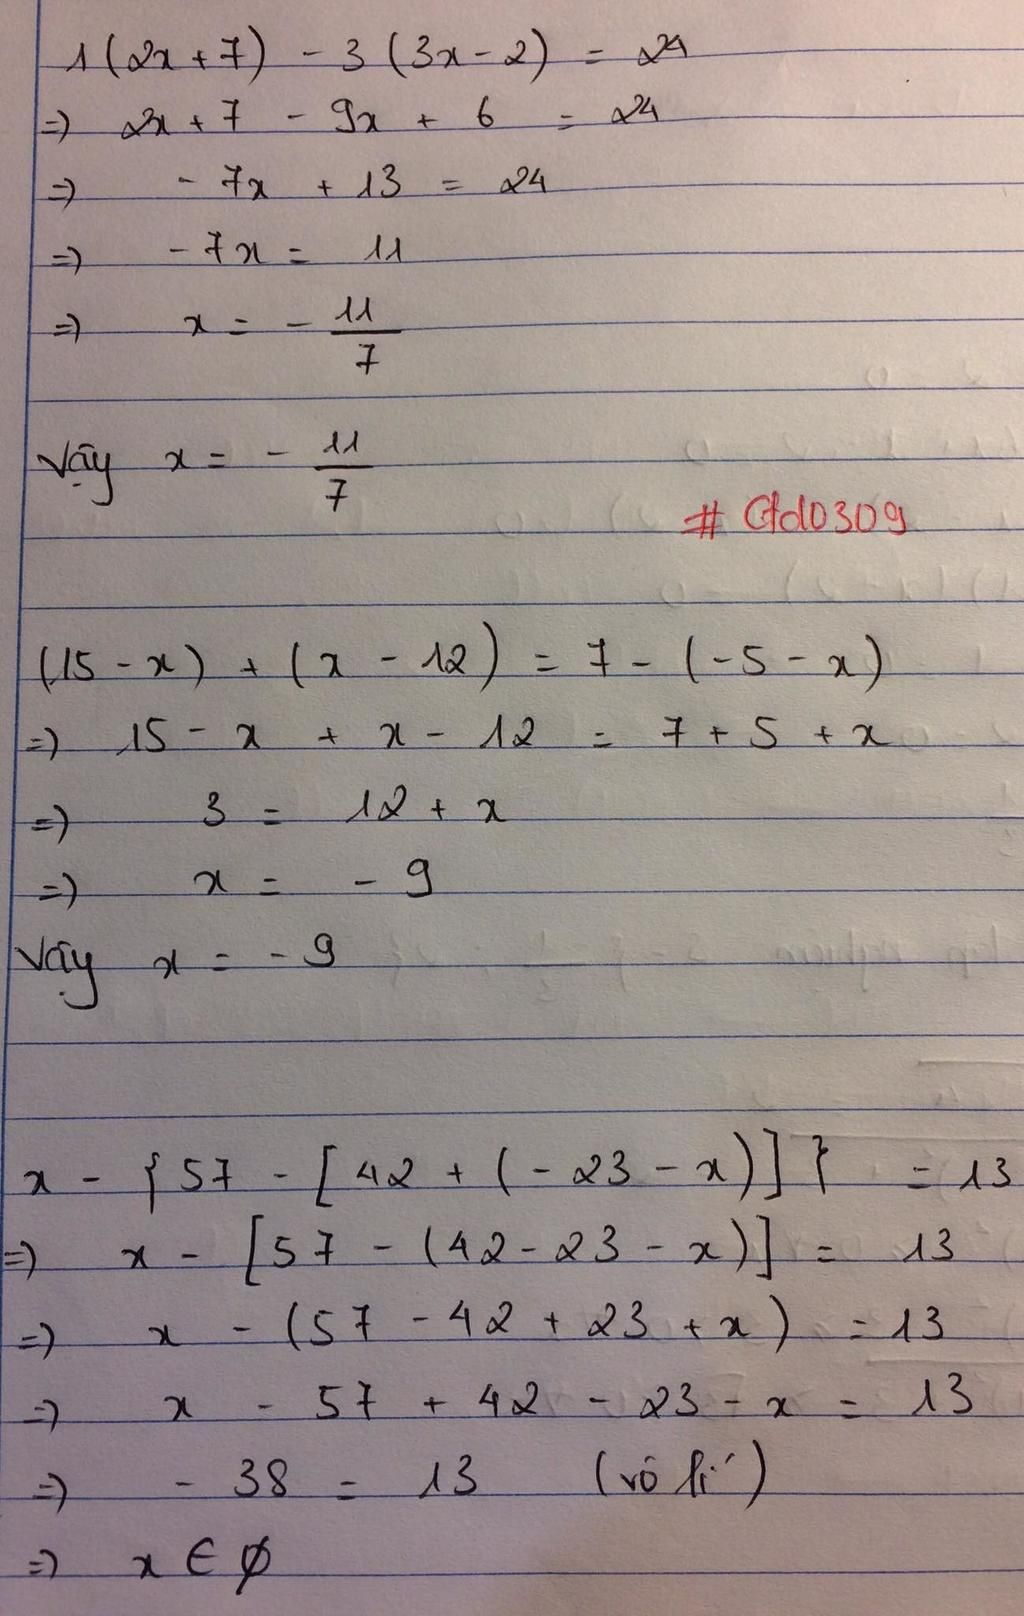 1(2x+7) - 3(3x-2) = 24
=> 2x+7 - 9x + 6 = 24
=> -7x + 13 = 24
=> -7x = 11
=> x = - 11/7
Vậy x = - 11/7
# Ctd0309
(15-x) + (x-12) = 7-(-5-x)
=> 15-x + x-12 = 7+5+x
=> 3 = 12+x
=> x = -9
Vậy x = -9
x - {57 - [42 + (-23-x)]} = 13
=> x - [57 - (42-23-x)] = 13
=> x - (57-42+23+x) = 13
=> x - 57 + 42 - 23 - x = 13
=> -38 = 13 (vô lí)
=> x ∈ ∅